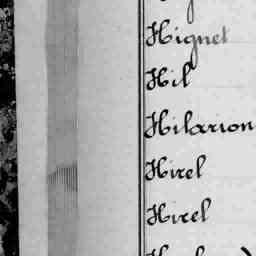 Hignet
Hil
Hilarion
Hirel
Hirel